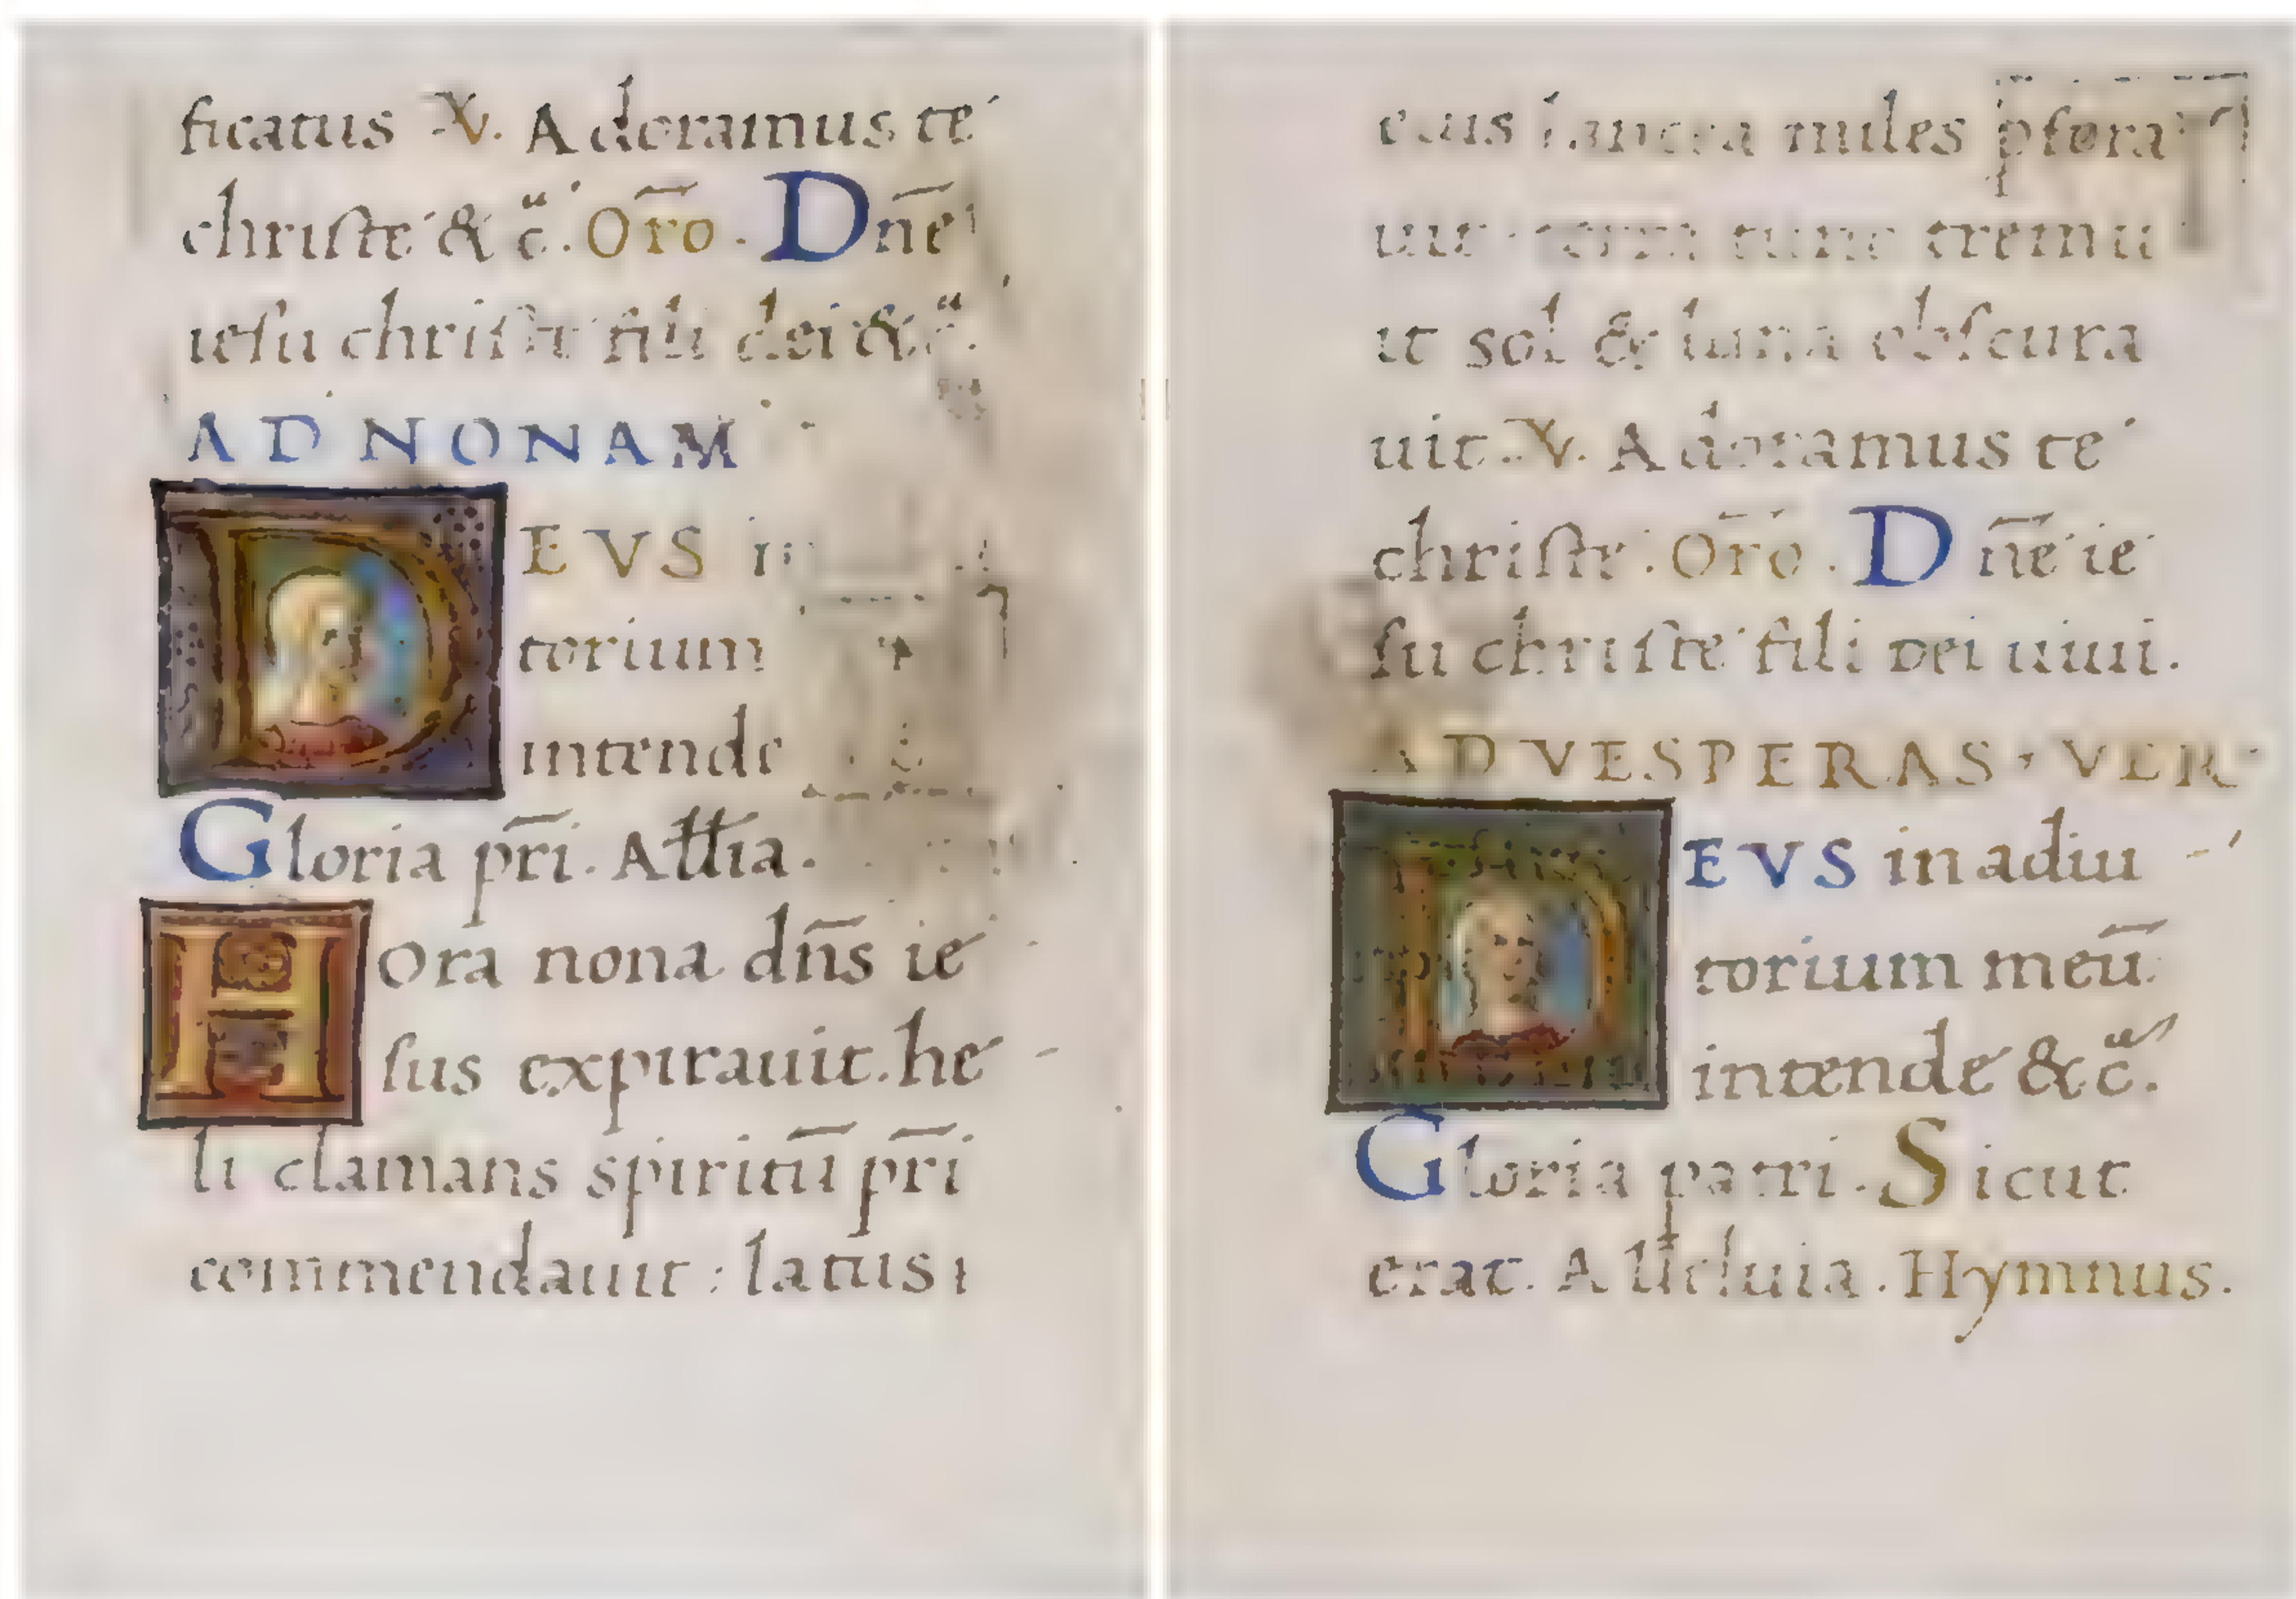 ficatus V. Adoramus te
christe & c̄. Or̄o. Dn̄e
iesu christe fili dei & c̄.
AD NONAM
DEVS
torium
intende
Gloria pr̄i. Allia.
Hora nona dn̄s ie
sus expirauit. he
li clamans spiritū pr̄i
commendauit: latus
eius lancea miles pfora
uit terra tunc tremu
it sol & luna obscura
uit. V. Adoramus te
christe. Or̄o. Dn̄e ie
su christe fili dei uiui.
AD VESPERAS. VER
DEVS in adiu
torium meū
intende & c̄.
Gloria patri. Sicut
erat. Alleluia. Hymnus.